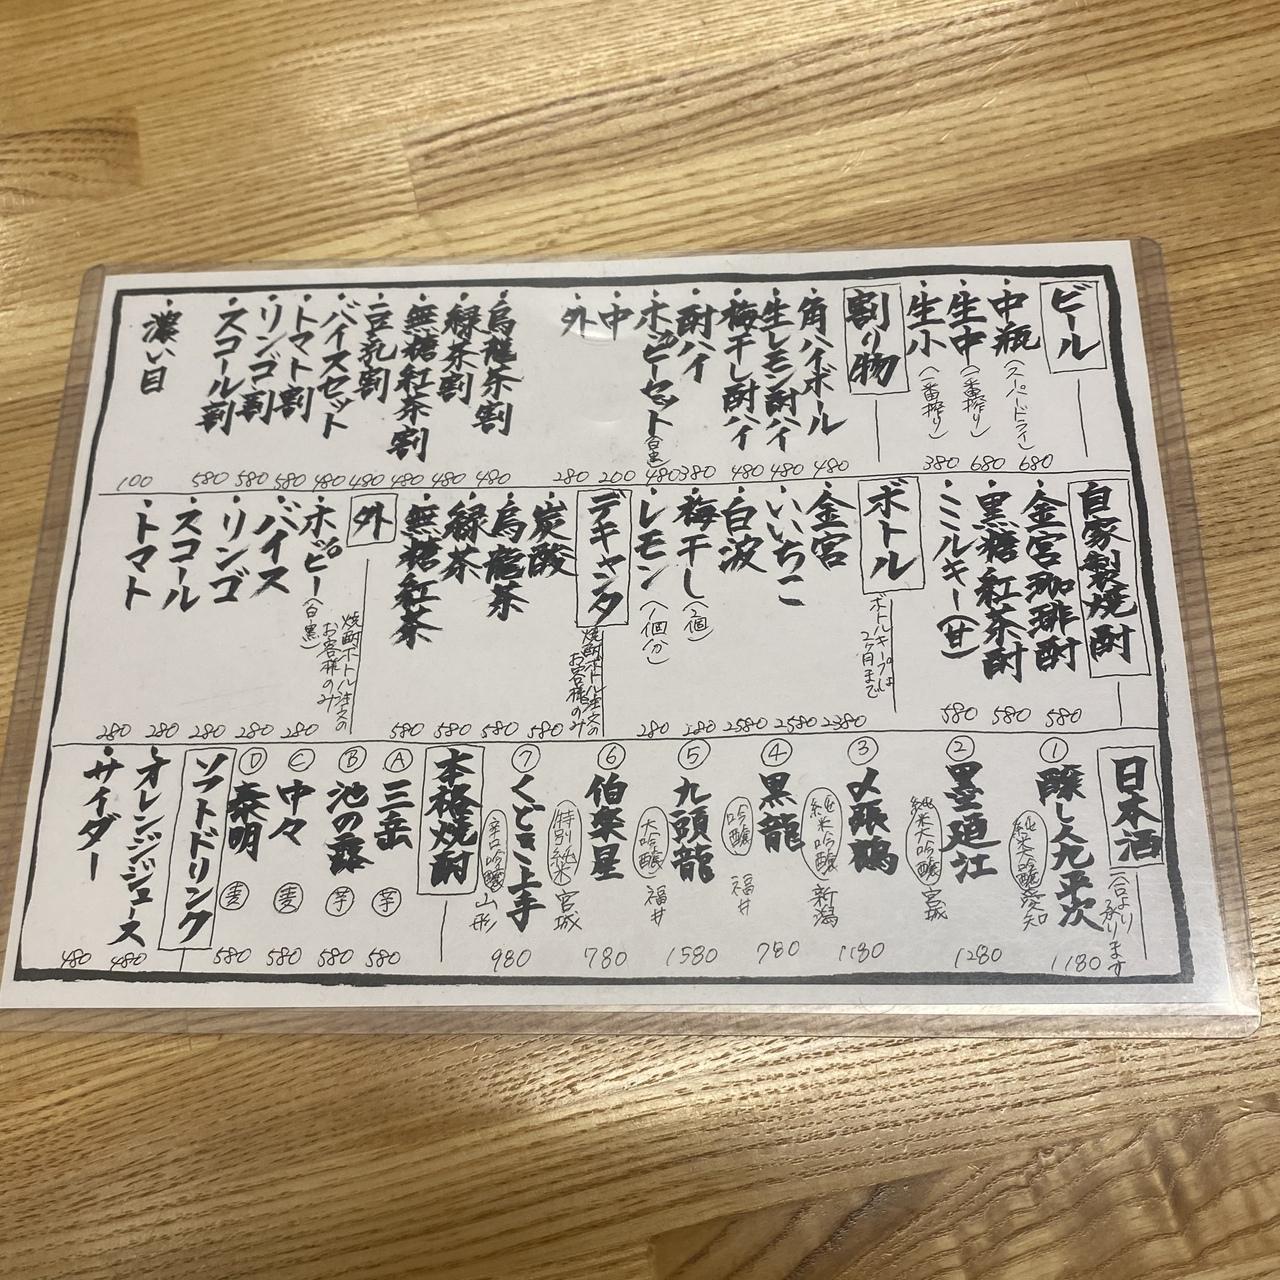 ビール
・中瓶(スーパードライ) 680
・生中(一番搾り) 680
・生小(一番搾り) 380
割り物
・角ハイボール 480
・生レモン酎ハイ 480
・梅干し酎ハイ 480
・酎ハイ 380
・ホッピーセット(白黒) 480
・中 200
・外 280
・烏龍茶割 480
・緑茶割 480
・無糖紅茶割 480
・豆乳割 480
・バイスセット 480
・トマト割 580
・リンゴ割 580
・スコール割 580
・濃い目 100
自家製焼酎
・金宮珈琲酎 580
・黒糖紅茶酎 580
・ミルキー(甘) 580
ボトル
ボトルキープは
2ヶ月まで
・金宮 2380
・いいちこ 2580
・白波 2580
・梅干し(2個) 280
・レモン(1個分) 280
デキャンタ
焼酎ボトル注文の
お客様のみ
・炭酸 580
・烏龍茶 580
・緑茶 580
・無糖紅茶 580
外
焼酎ボトル注文の
お客様のみ
・ホッピー(白黒) 280
・バイス 280
・リンゴ 280
・スコール 280
・トマト 280
日本酒
一合より
承ります
①醸し人九平次 純米大吟醸 愛知 1180
②墨廼江 純米大吟醸 宮城 1280
③〆張鶴 純米吟醸 新潟 1180
④黒龍 吟醸 福井 780
⑤九頭龍 大吟醸 福井 1580
⑥伯楽星 特別純米 宮城 780
⑦くどき上手 辛口吟醸 山形 980
本格焼酎
Ⓐ三岳 芋 580
Ⓑ池の露 芋 580
Ⓒ中々 麦 580
Ⓓ泰明 麦 580
ソフトドリンク
・オレンジジュース 480
・サイダー 480